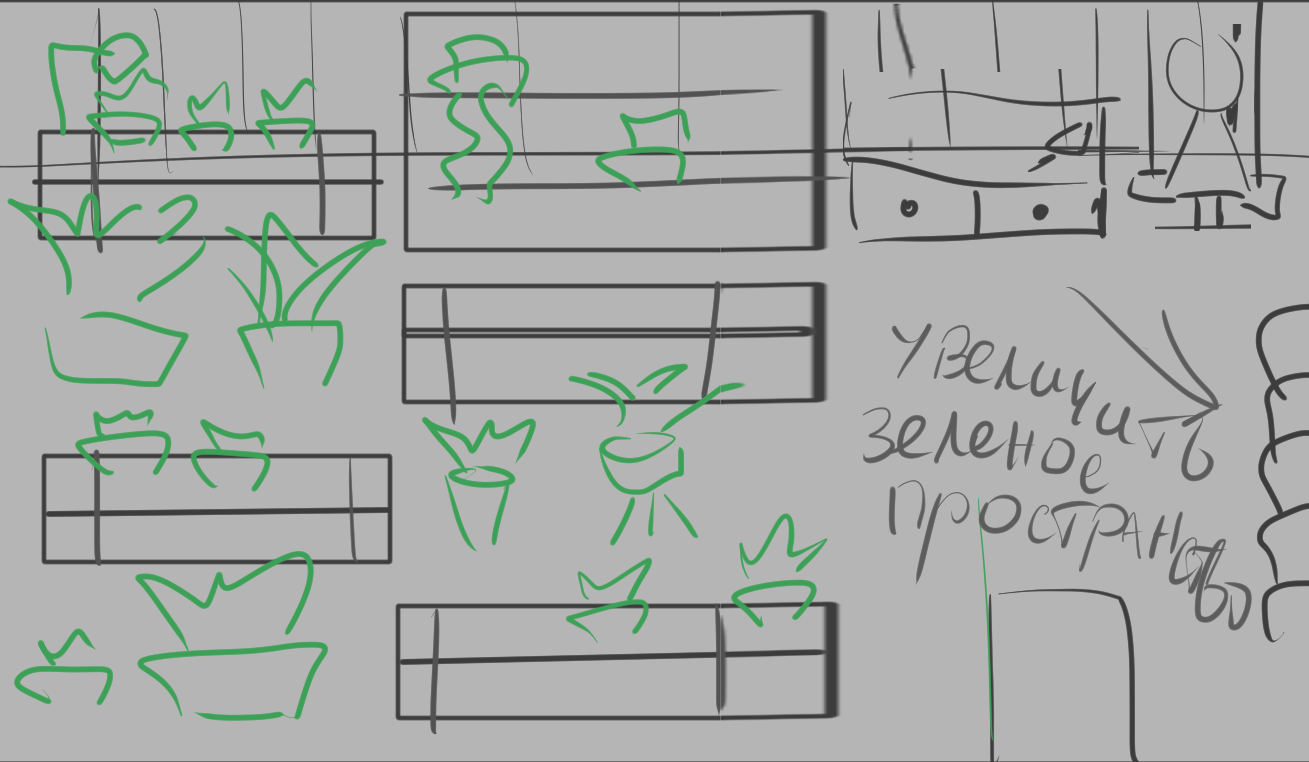 Увеличить
зеленое
пространство